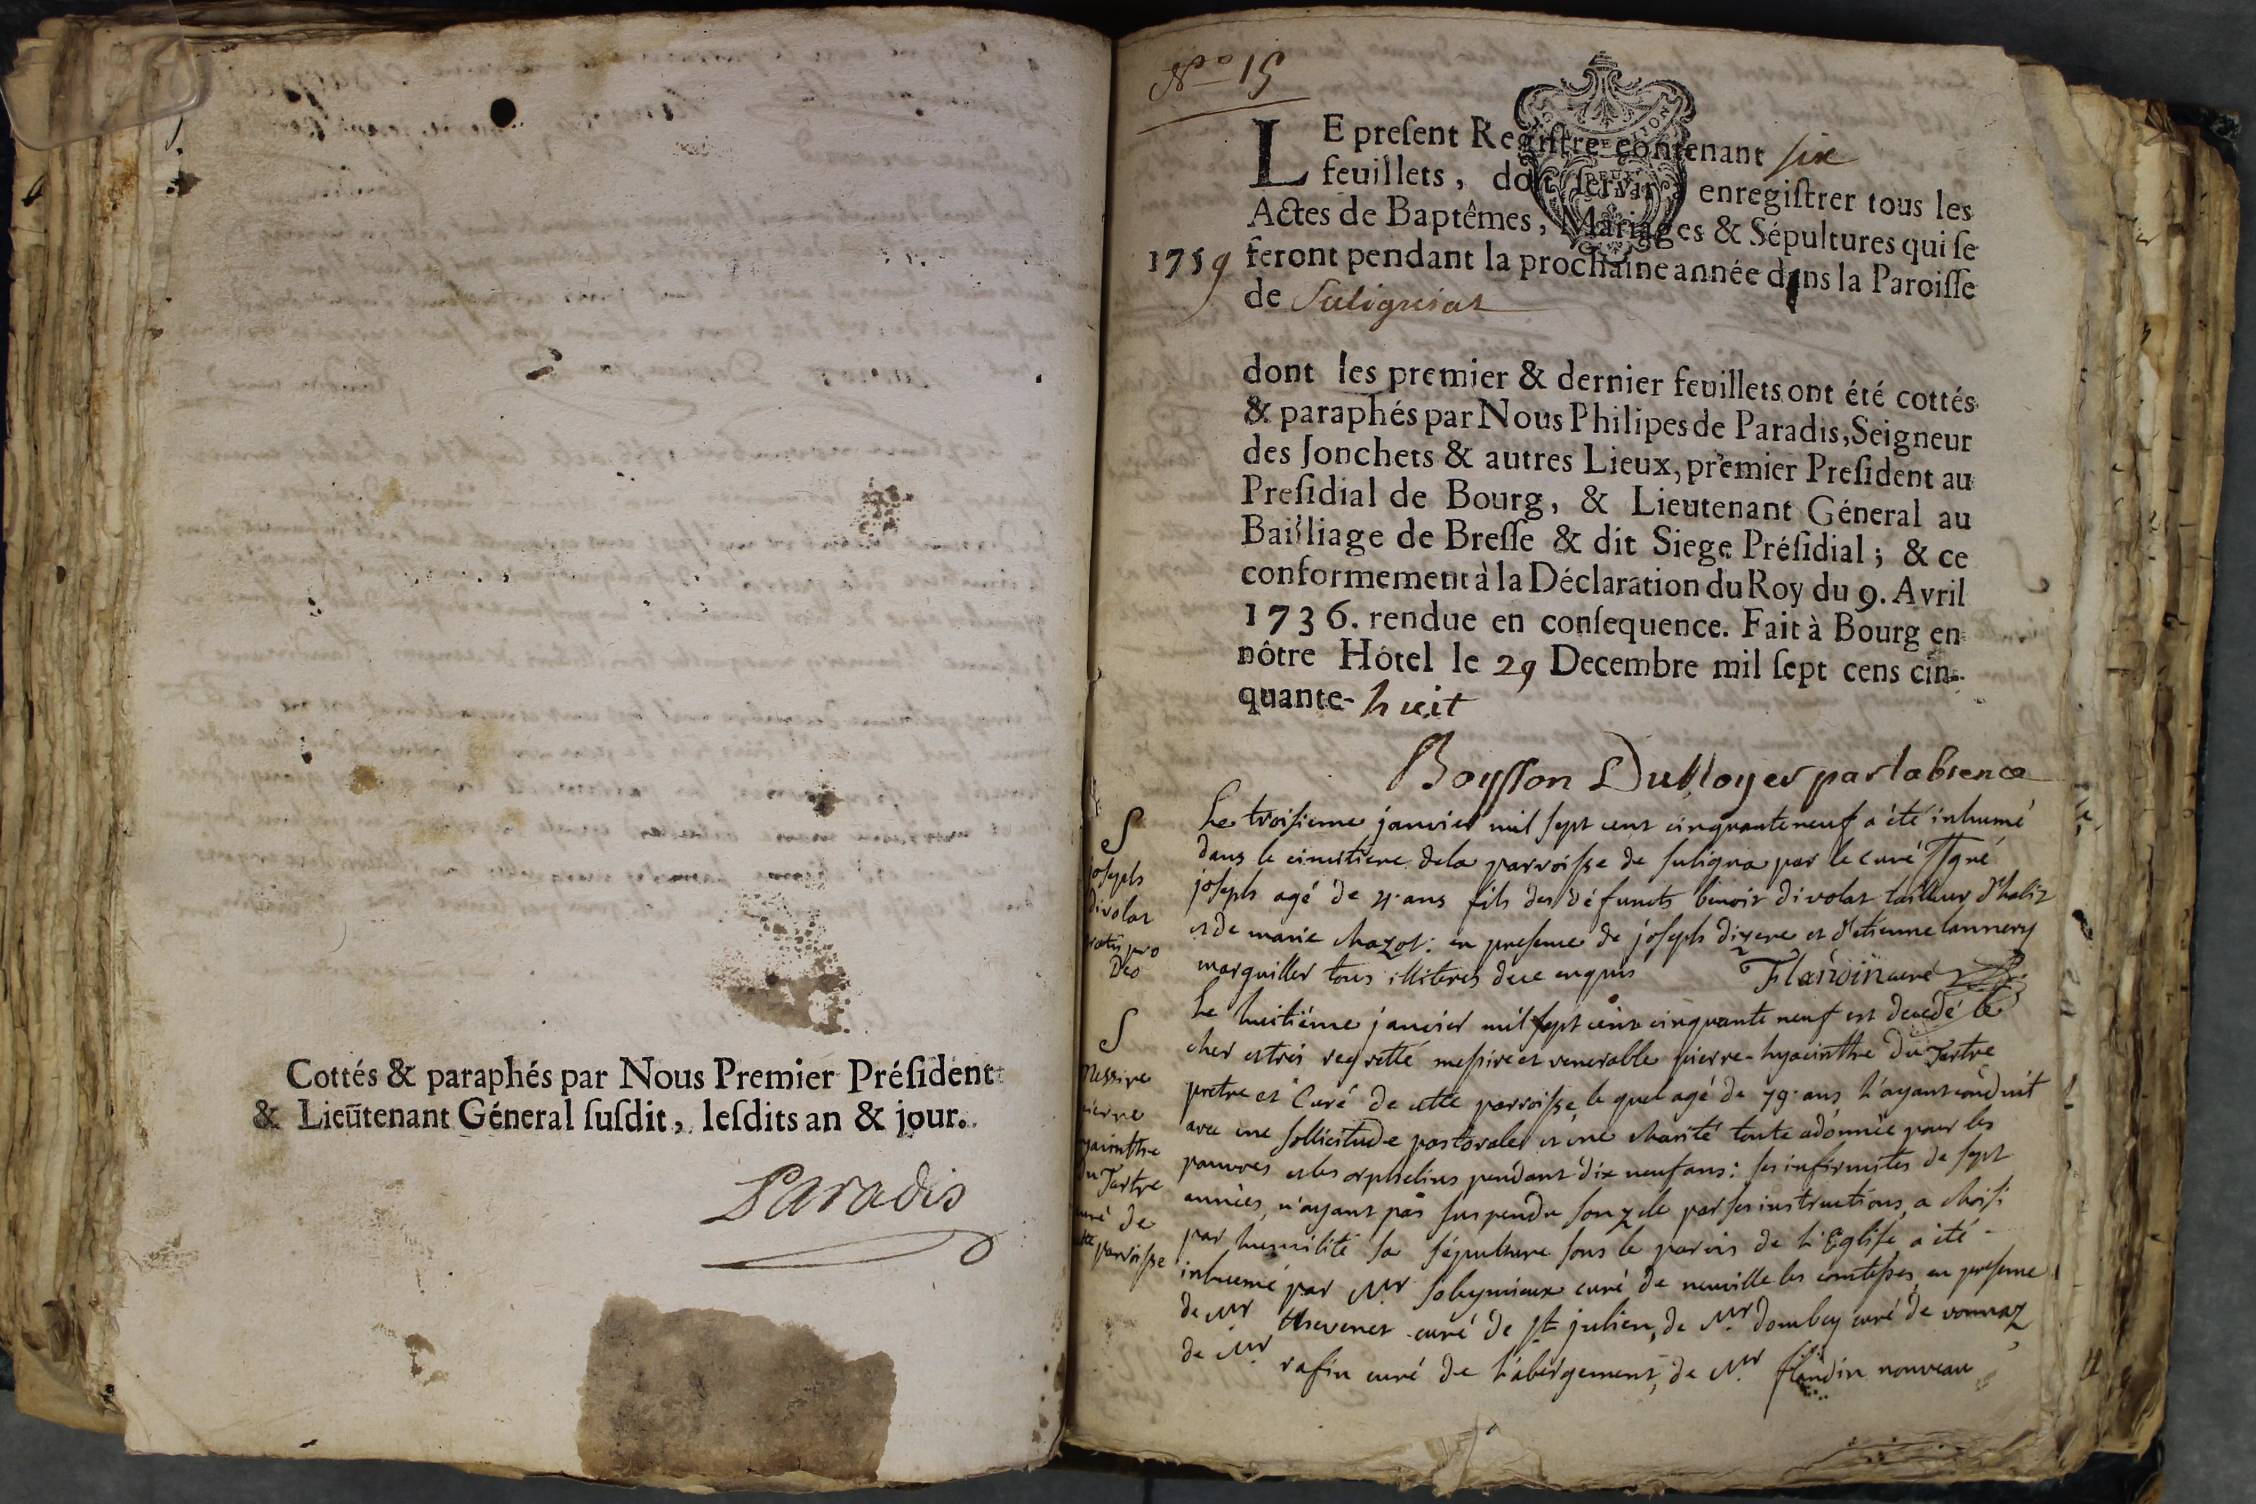 Cottés & paraphés par Nous Premier Préſident
& Lieutenant Géneral ſuſdit, leſdits an & jour.
Paradis
No 15
LE preſent Regiſtre contenant six
feuillets, doit ſervir à enregiſtrer tous les
Actes de Baptêmes, Mariages & Sépultures qui ſe
1759 feront pendant la prochaine année dans la Paroiſſe
de Suligniat
dont les premier & dernier feuillets ont été cottés
& paraphés par Nous Philipes de Paradis, Seigneur
des Jonchets & autres Lieux, premier Preſident au
Preſidial de Bourg, & Lieutenant Géneral au
Bailliage de Breſſe & dit Siege Préſidial ; & ce
conformement à la Déclaration du Roy du 9. Avril
1736. rendue en conſequence. Fait à Bourg en
nôtre Hôtel le 29 Decembre mil ſept cens cin-
quante-huit
Boysson Dunoyer par labsence
S
joseph
divolat
pro
Deo
Le troisieme janvier mil sept cent cinquante neuf a été inhumé
dans le cimitiere dela parroisse de suligna par le curé
joseph agé de 4 ans fils des défuncts benoit divolat tailleur d'habit
et de marie chazot : en presence de joseph et d'etienne lannery
marguiller tous illiteres de ce enquis Flandin curé
S
Messire
pierre
hyacinthe
Du Tartre
curé de
cette parroisse
Le huitiéme janvier mil sept cent cinquante neuf est decedé le
cher et très regretté messire et venerable pierre-hyacinthe Du Tartre
pretre et Curé de cette parroisse, le quel agé de 79 ans l'ayant conduit
avec une sollicitude pastorale et une charité toute adonnée pour les
pauvres et les orphelins pendant dix neuf ans : ses infirmités de sept
années, n'ayant pas suspendu son zele par ses instructions, a choisi
par humilité sa sépulture sous le parvis de l'Eglise, a été
inhumé par Mr. curé de neuville les comtesses, en presence
de Mr thevenet curé de st julien, de Mr. dombey curé de vonnaz
de Mr rafin curé de l'abergement, de Mr. flandin nouveau